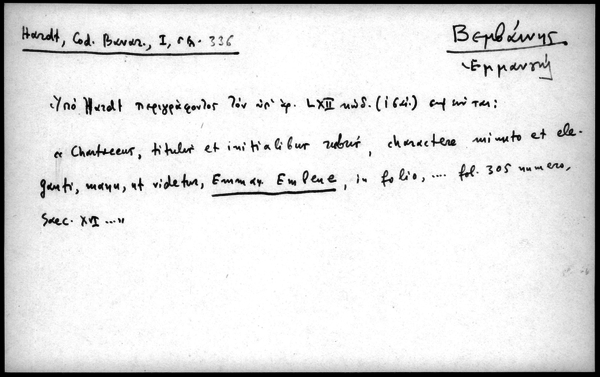 Hardt, Cod. Bavar., I, σελ. 336
Βεμβάινης
Ἐμμανουήλ
Ὑπό Hardt περιγράφοντος τόν ὑπ' ἀρ. LXII κώδ. ( ) σημειοῦται:
« Chartaceus, titulis et initialibus rubris, charactere minuto et ele-
ganti, manu, ut videtur, Emman. Embene, in folio, .... fol. 305 numero,
saec. XVI ....»